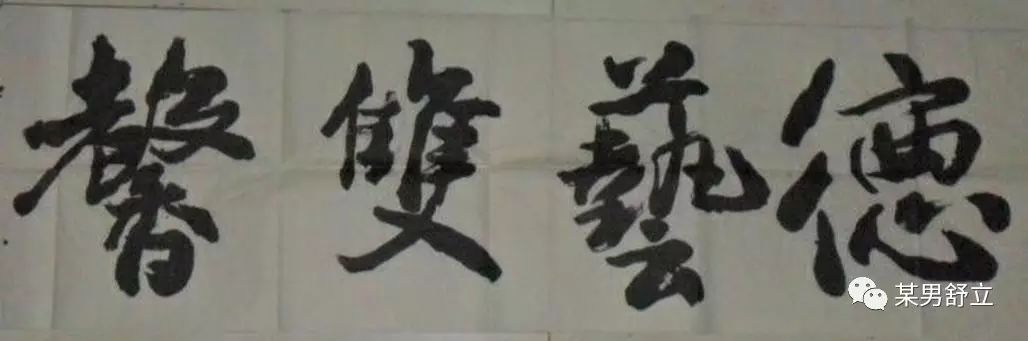 德藝雙馨
某男舒立